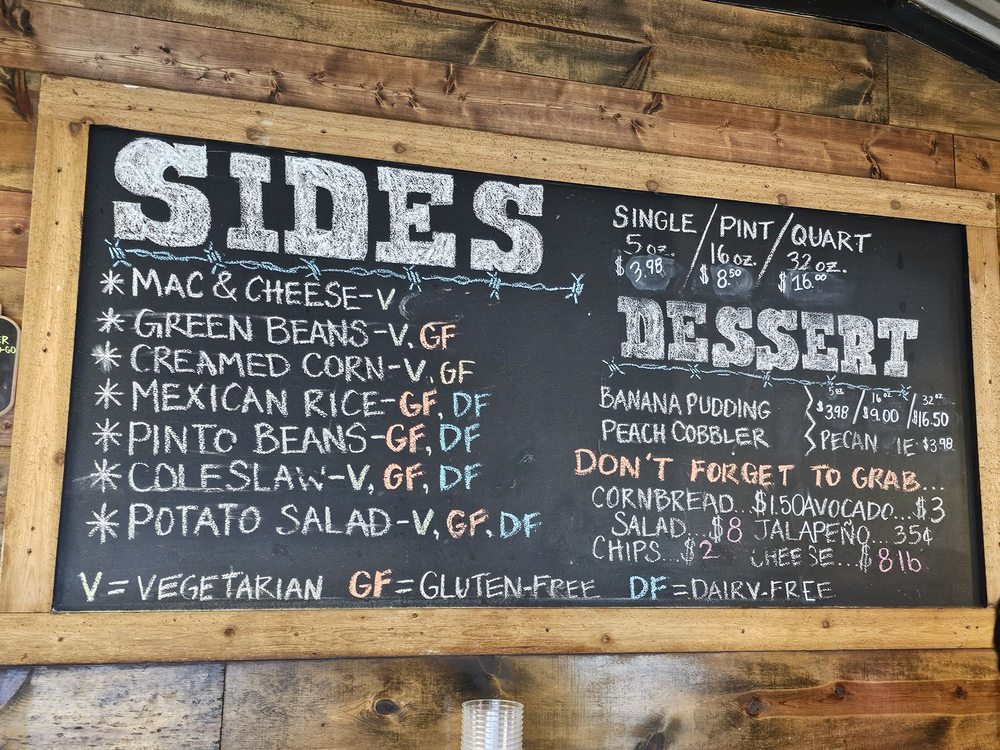 SIDES
* MAC & CHEESE-V
* GREEN BEANS-V, GF
* CREAMED CORN-V, GF
* MEXICAN RICE-GF, DF
* PINTO BEANS-GF, DF
* COLESLAW-V, GF, DF
* POTATO SALAD-V, GF, DF
V=VEGETARIAN GF=GLUTEN-FREE DF=DAIRY-FREE
SINGLE / PINT / QUART
5 oz. 16 oz. 32 oz.
$3.98 $8.50 $16.00
DESSERT
5oz 16oz 32oz
BANANA PUDDING $3.98 / $9.00 / $16.50
PEACH COBBLER PECAN IE $3.98
DON'T FORGET TO GRAB...
CORNBREAD...$1.50 AVOCADO...$3
SALAD...$8 JALAPEÑO...35¢
CHIPS...$2 CHEESE...$8 lb